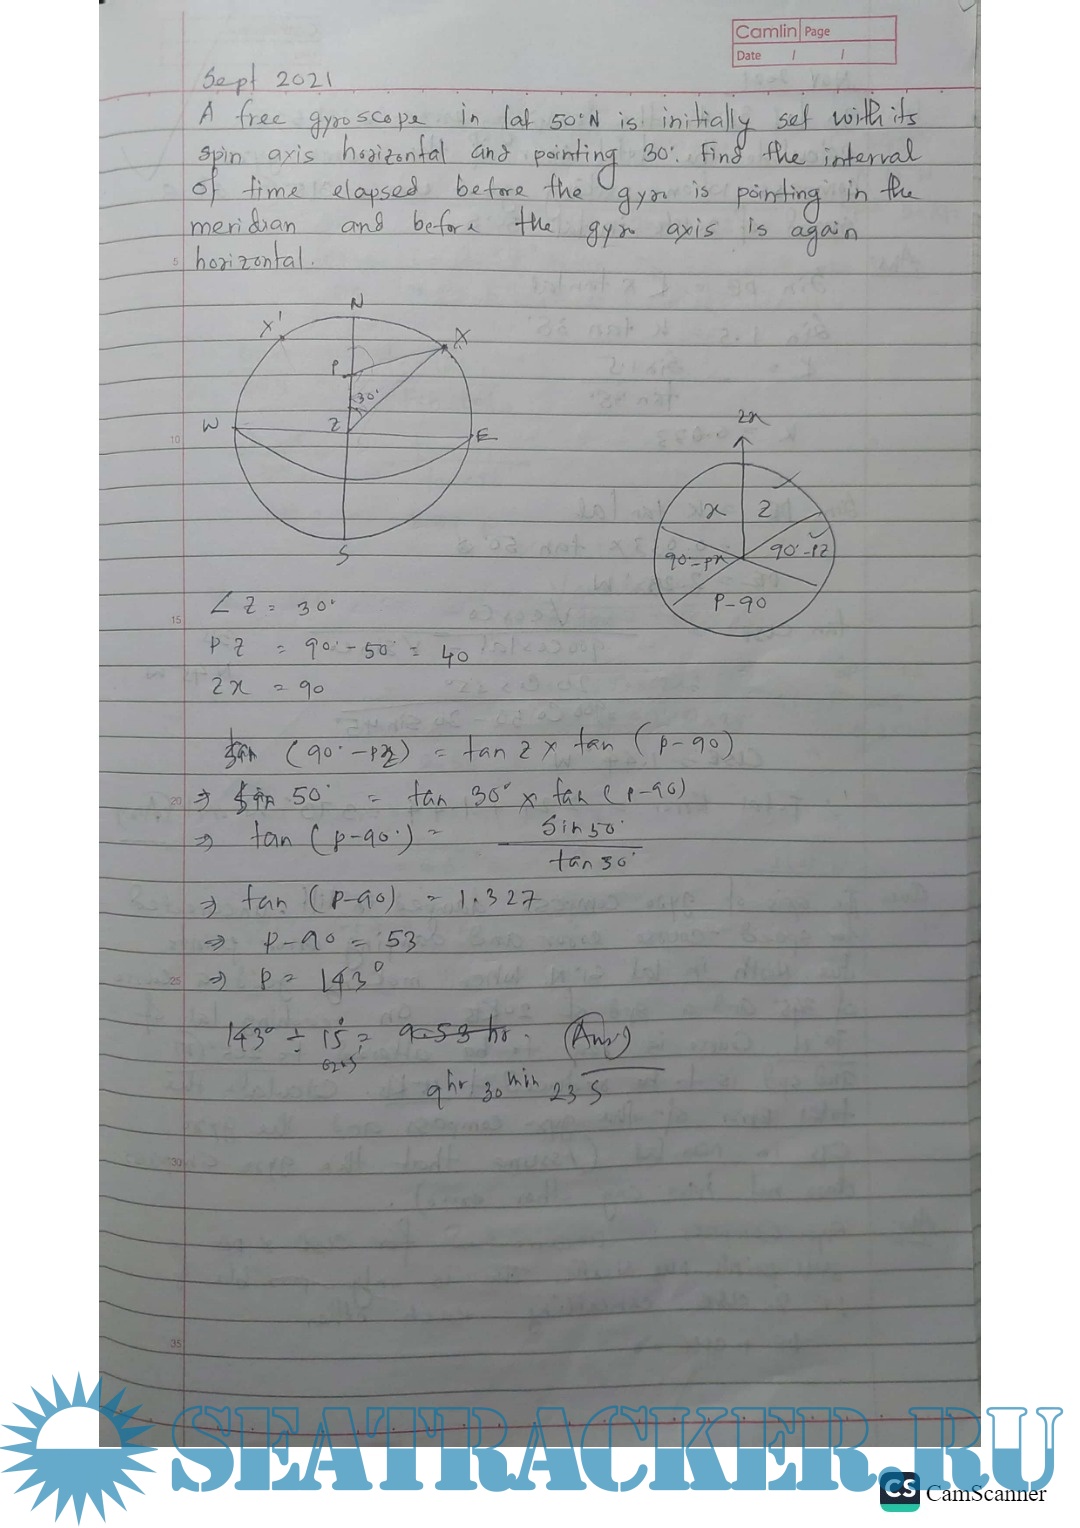 Camlin Page
Date / /
Sept 2021
A free gyroscope in lat 50°N is initially set with its
spin axis horizontal and pointing 30°. Find the interval
of time elapsed before the gyro is pointing in the
meridian and before the gyro axis is again
5 horizontal.
N
X' X
P
30°
W Z E
10
S
Zx
x Z
90°-px 90°-PZ
P-90
∠Z = 30°
15
PZ = 90° - 50° = 40
Zx = 90
(90° - PZ) = tan Z x tan (P-90)
20 ⇒ sin 50° = tan 30° x tan (P-90)
⇒ tan (P-90°) = sin 50° / tan 30°
⇒ tan (P-90) = 1.327
⇒ P-90 = 53
25 ⇒ P = 143°
143° ÷ 15° = 9.53 hr. (Ans)
9 hr 30 min 23 S
30
35
SEATRACKER.RU
CS CamScanner